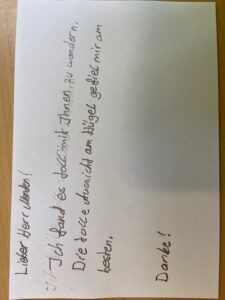 Lieber Herr !
:) Ich fand es toll mit Ihnen, zu wandern.
Die tolle Aussicht am Hügel gefiel mir am
besten.
Danke!